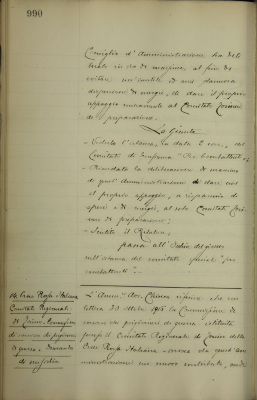 990
Consiglio d'Amministrazione ha deli
berato in via di massima, al fine di
evitare un'inutile e dannosa
dispersione di energie, di dare il proprio
appoggio unicamente al Comitato
di preparazione.
La Giunta
- Veduta l'istanza, in data 2 corr., del
Comitato di "Pro Combattenti";
- Ricordata la deliberazione di massima
di quest'Amministrazione di dare
il proprio appoggio, a risparmio di
spese e di energie, al solo Comitato
di preparazione;
- Sentito il Relatore,
passa all'Ordine del giorno
sull'istanza del comitato "pro
combattenti".
Croce Rossa Italiana
Comitato Regionale
di Torino - Commissione
di soccorso dei prigionieri
di guerra - Domanda
di
L'Assess. Avv. riferisce che con
lettera 1918 la Commissione di
soccorso dei prigionieri di guerra istituita
presso il Comitato Regionale di Torino della
Croce Rossa Italiana che quest'Am
ministrazione un nuovo contributo,